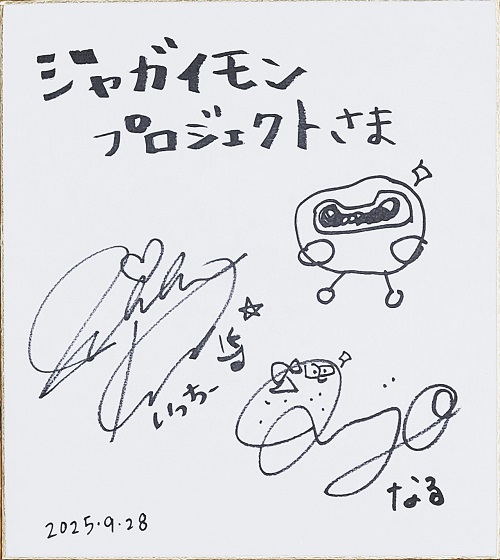 ジャガイモン
プロジェクトさま
いっちー
なる
2025.9.28